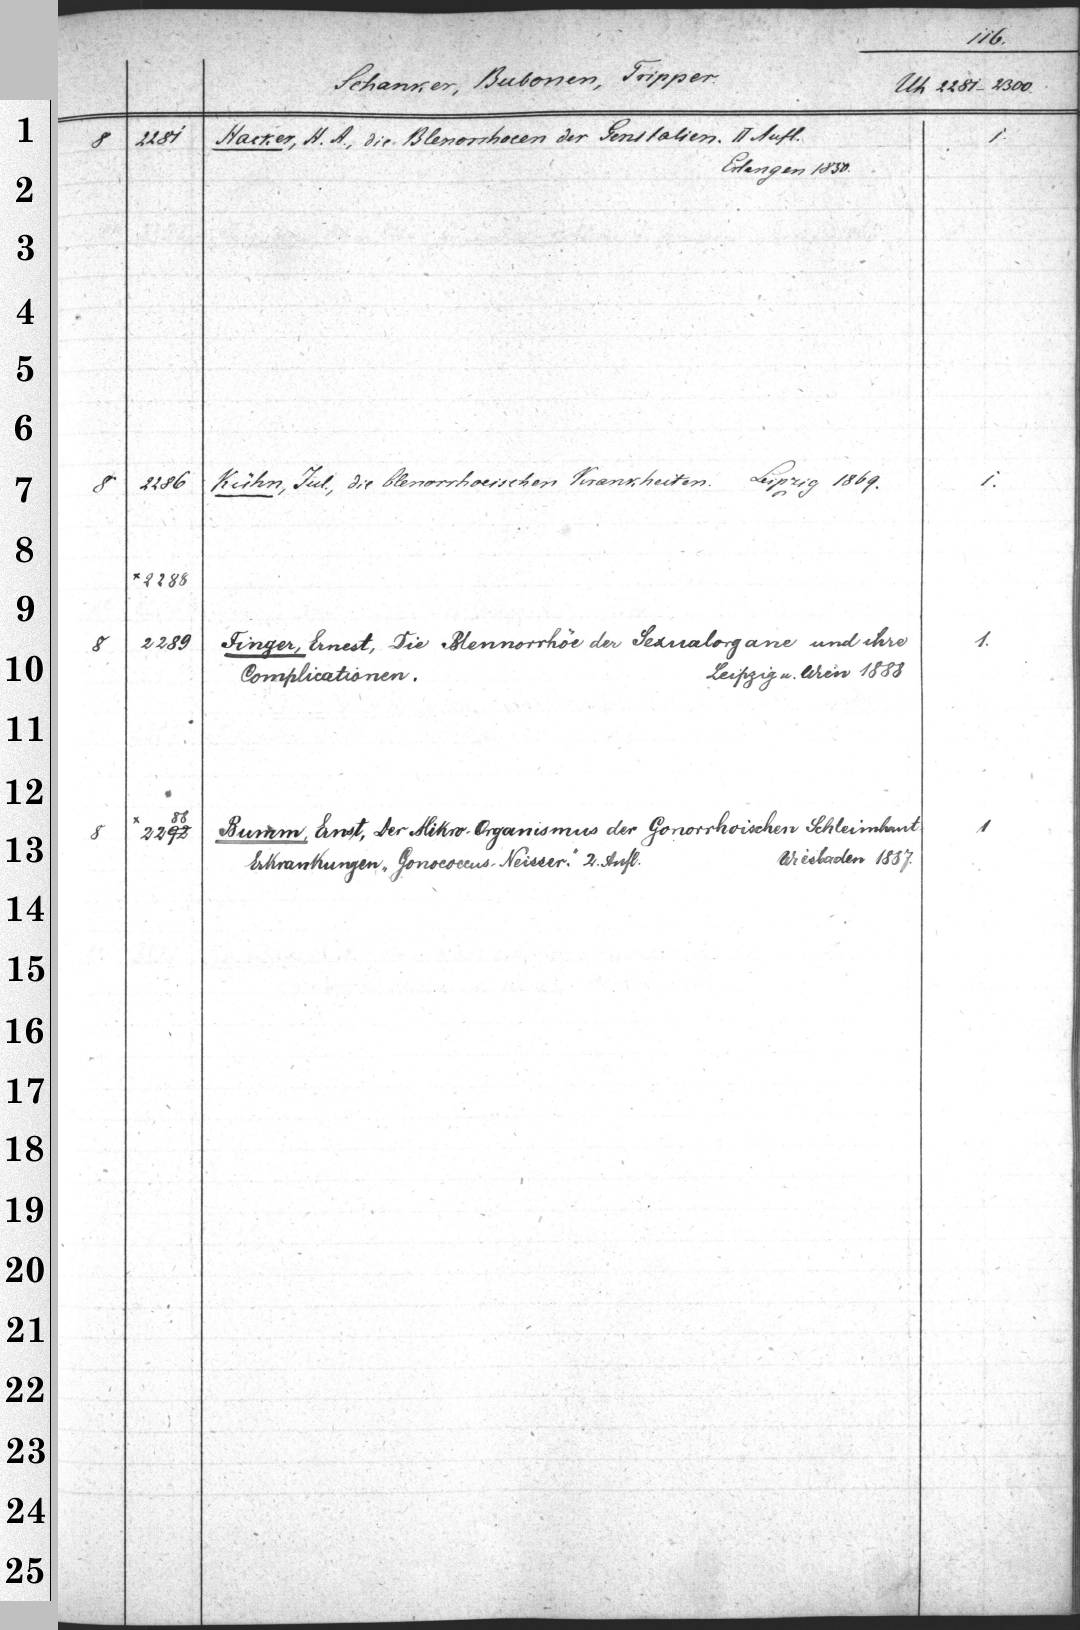 116.
Schanker, Bubonen, Tripper.
Uh 2281-2300.
1
8 2281 Hacker, H. A., die Blenorrhoeen der Genitalien. II Aufl. 1.
Erlangen 1850.
2
3
4
5
6
7
8 2286 Kühn, Jul., die blenorrhoeischen Krankheiten. Leipzig 1869. 1.
8
×2288
9
8 2289 Finger, Ernest, Die Blennorrhöe der Sexualorgane und ihre 1.
10
Complicationen. Leipzig u. Wien 1888
11
12
88
8 ×2292 Bumm, Ernst, Der Mikro-Organismus der Gonorrhoischen Schleimhaut 1
13
Erkrankungen „Gonococcus-Neisser." 2. Aufl. Wiesbaden 1887.
14
15
16
17
18
19
20
21
22
23
24
25